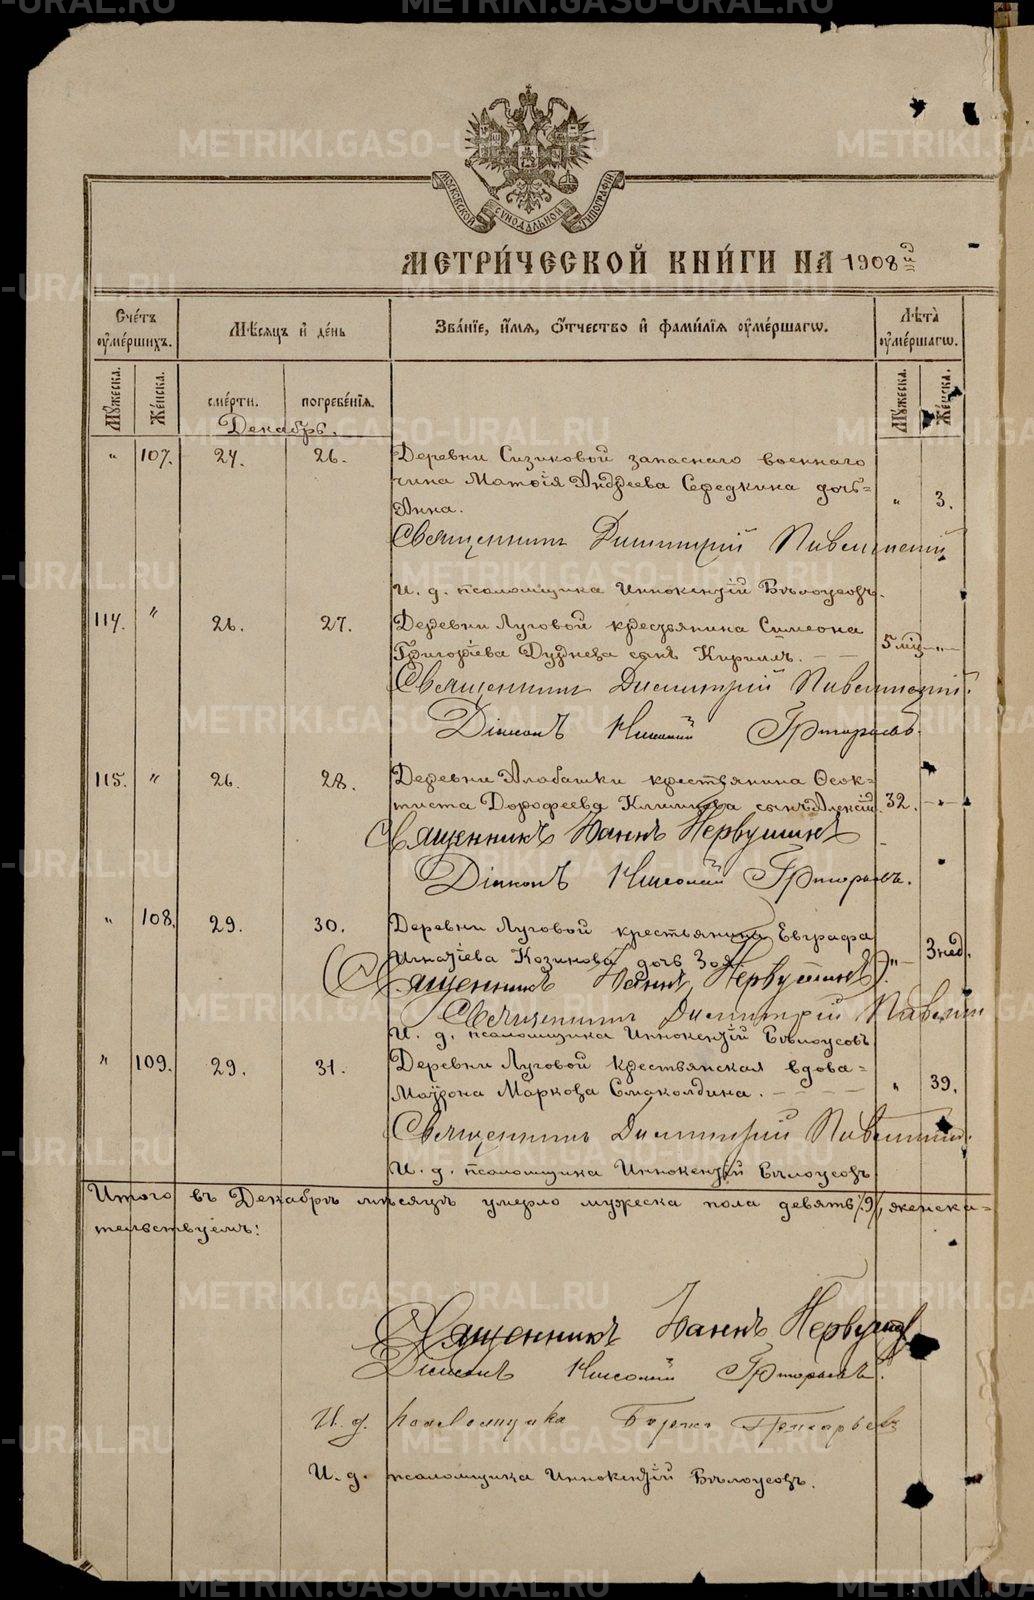 МОСКОВСКОЙ СѴНОДАЛЬНОЙ ТИПОГРАФІИ
МЕТРИ́ЧЕСКОЙ КНИ́ГИ НА 1908 годъ
Сче́тъ ᲂу҆ме́ршихъ.
Мѣ́сяцъ и҆ де́нь
Зва́нїе, и҆́мя, ѻ҆́тчество и҆ фами́лїя ᲂу҆ме́ршагѡ.
Лѣ́та ᲂу҆ме́ршагѡ.
Му́жеска.
Же́нска.
сме́рти.
погребе́нїя.
Му́жеска.
Же́нска.
Декабрь.
" 107. 24. 26. Деревни Сизиковой запаснаго военнаго
чина Матѳія Андреева Середкина дочь " 3.
Анна.
Священникъ Димитрій
И. д. псаломщика Иннокентій Бѣлоусовъ.
114. " 26. 27. Деревни Луговой крестьянина Симеона
Григоріева Дурнева сынъ Кириллъ. 5 мѣс. "
Священникъ Димитрій
Діаконъ Николай Григорьевъ.
115. " 26. 28. Деревни Алабашки крестьянина Ѳеок-
тиста Дорофеева Климова сынъ Алексій 32. "
Священникъ Іоаннъ Первушинъ
Діаконъ Николай Григорьевъ.
" 108. 29. 30. Деревни Луговой крестьянина Евграфа
Игнатіева Козикова дочь Зоя. " 3 нед.
(Священникъ Іоаннъ Первушинъ).
Священникъ Димитрій
И. д. псаломщика Иннокентій Бѣлоусовъ
" 109. 29. 31. Деревни Луговой крестьянская вдова
Маркова " 39.
Священникъ Димитрій
И. д. псаломщика Иннокентій Бѣлоусовъ
Итого въ Декабрѣ мѣсяцѣ умерло мужеска пола девять /9/, женска-
тельствуемъ:
Священникъ Іоаннъ Первушинъ
Діаконъ Николай Григорьевъ.
И. д. псаломщика
И. д. псаломщика Иннокентій Бѣлоусовъ.
METRIKI.GASO-URAL.RU